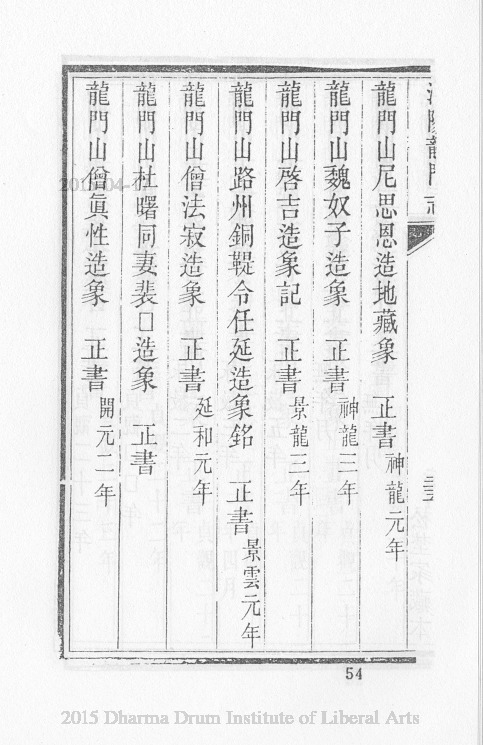 龍門山尼思恩造地藏象　正書神龍元年
龍門山魏奴子造象　正書神龍三年
龍門山啓吉造象記　正書景龍三年
龍門山路州銅鞮令任延造象銘　正書景雲元年
龍門山僧法寂造象　正書延和元年
龍門山杜曙同妻裴□造象　正書
龍門山僧眞性造象　正書開元二年
54
2015 Dharma Drum Institute of Liberal Arts